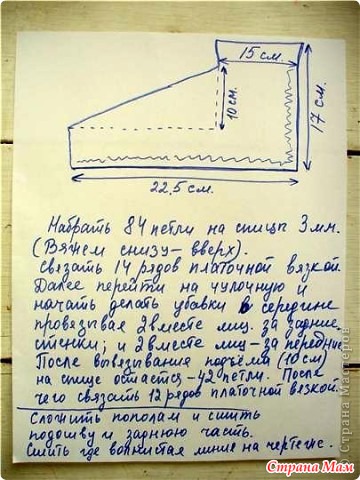 15 см.
10 см.
17 см.
22,5 см.
Набрать 84 петли на спицы 3 мм.
(Вяжем снизу-вверх).
Связать 14 рядов платочной вязкой.
Далее перейти на чулочную и
начать делать убавки в середине
провязывая 2 вместе лиц. за задние
стенки; и 2 вместе лиц-за передние
После вывязывания подъёма (10 см)
на спице остаётся-42 петли. После
чего связать 12 рядов платочной вязкой.
Сложить пополам и сшить
подошву и заднюю часть.
Сшить где волнистая линия на чертеже.
© Страна Мастеров
Страна Мам